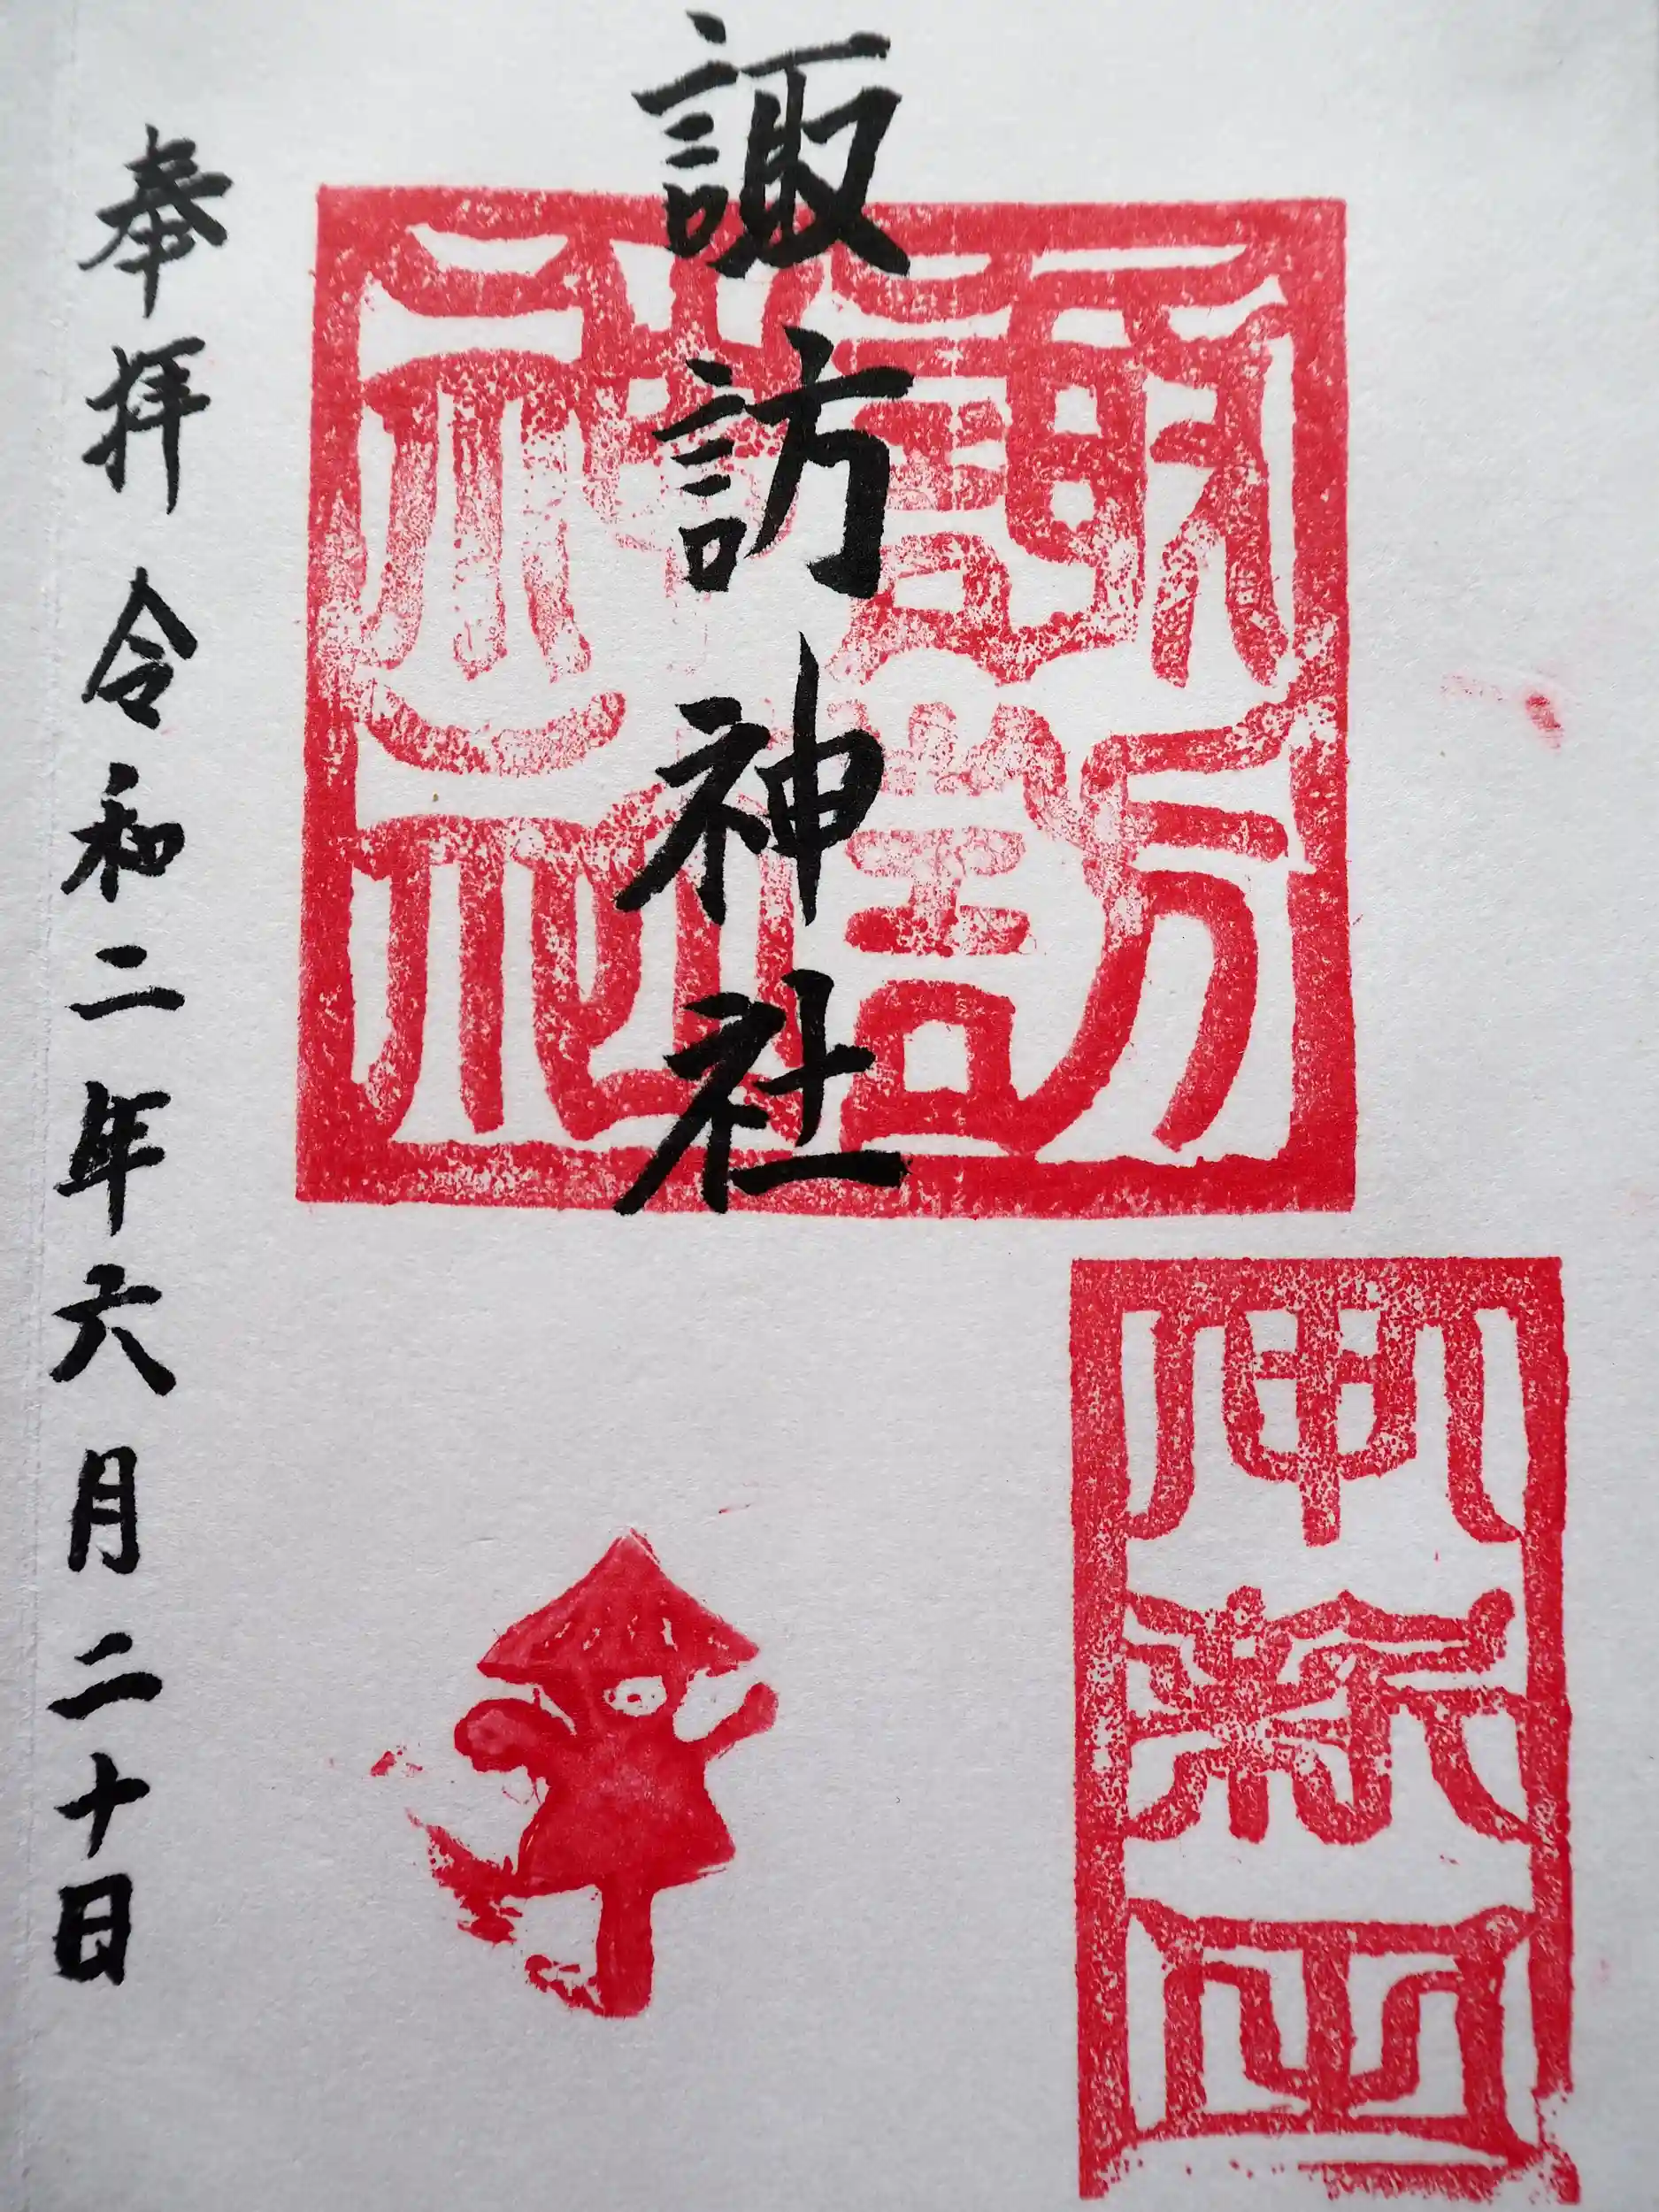 諏訪神社
奉拝 令和二年六月二十日
諏訪神社